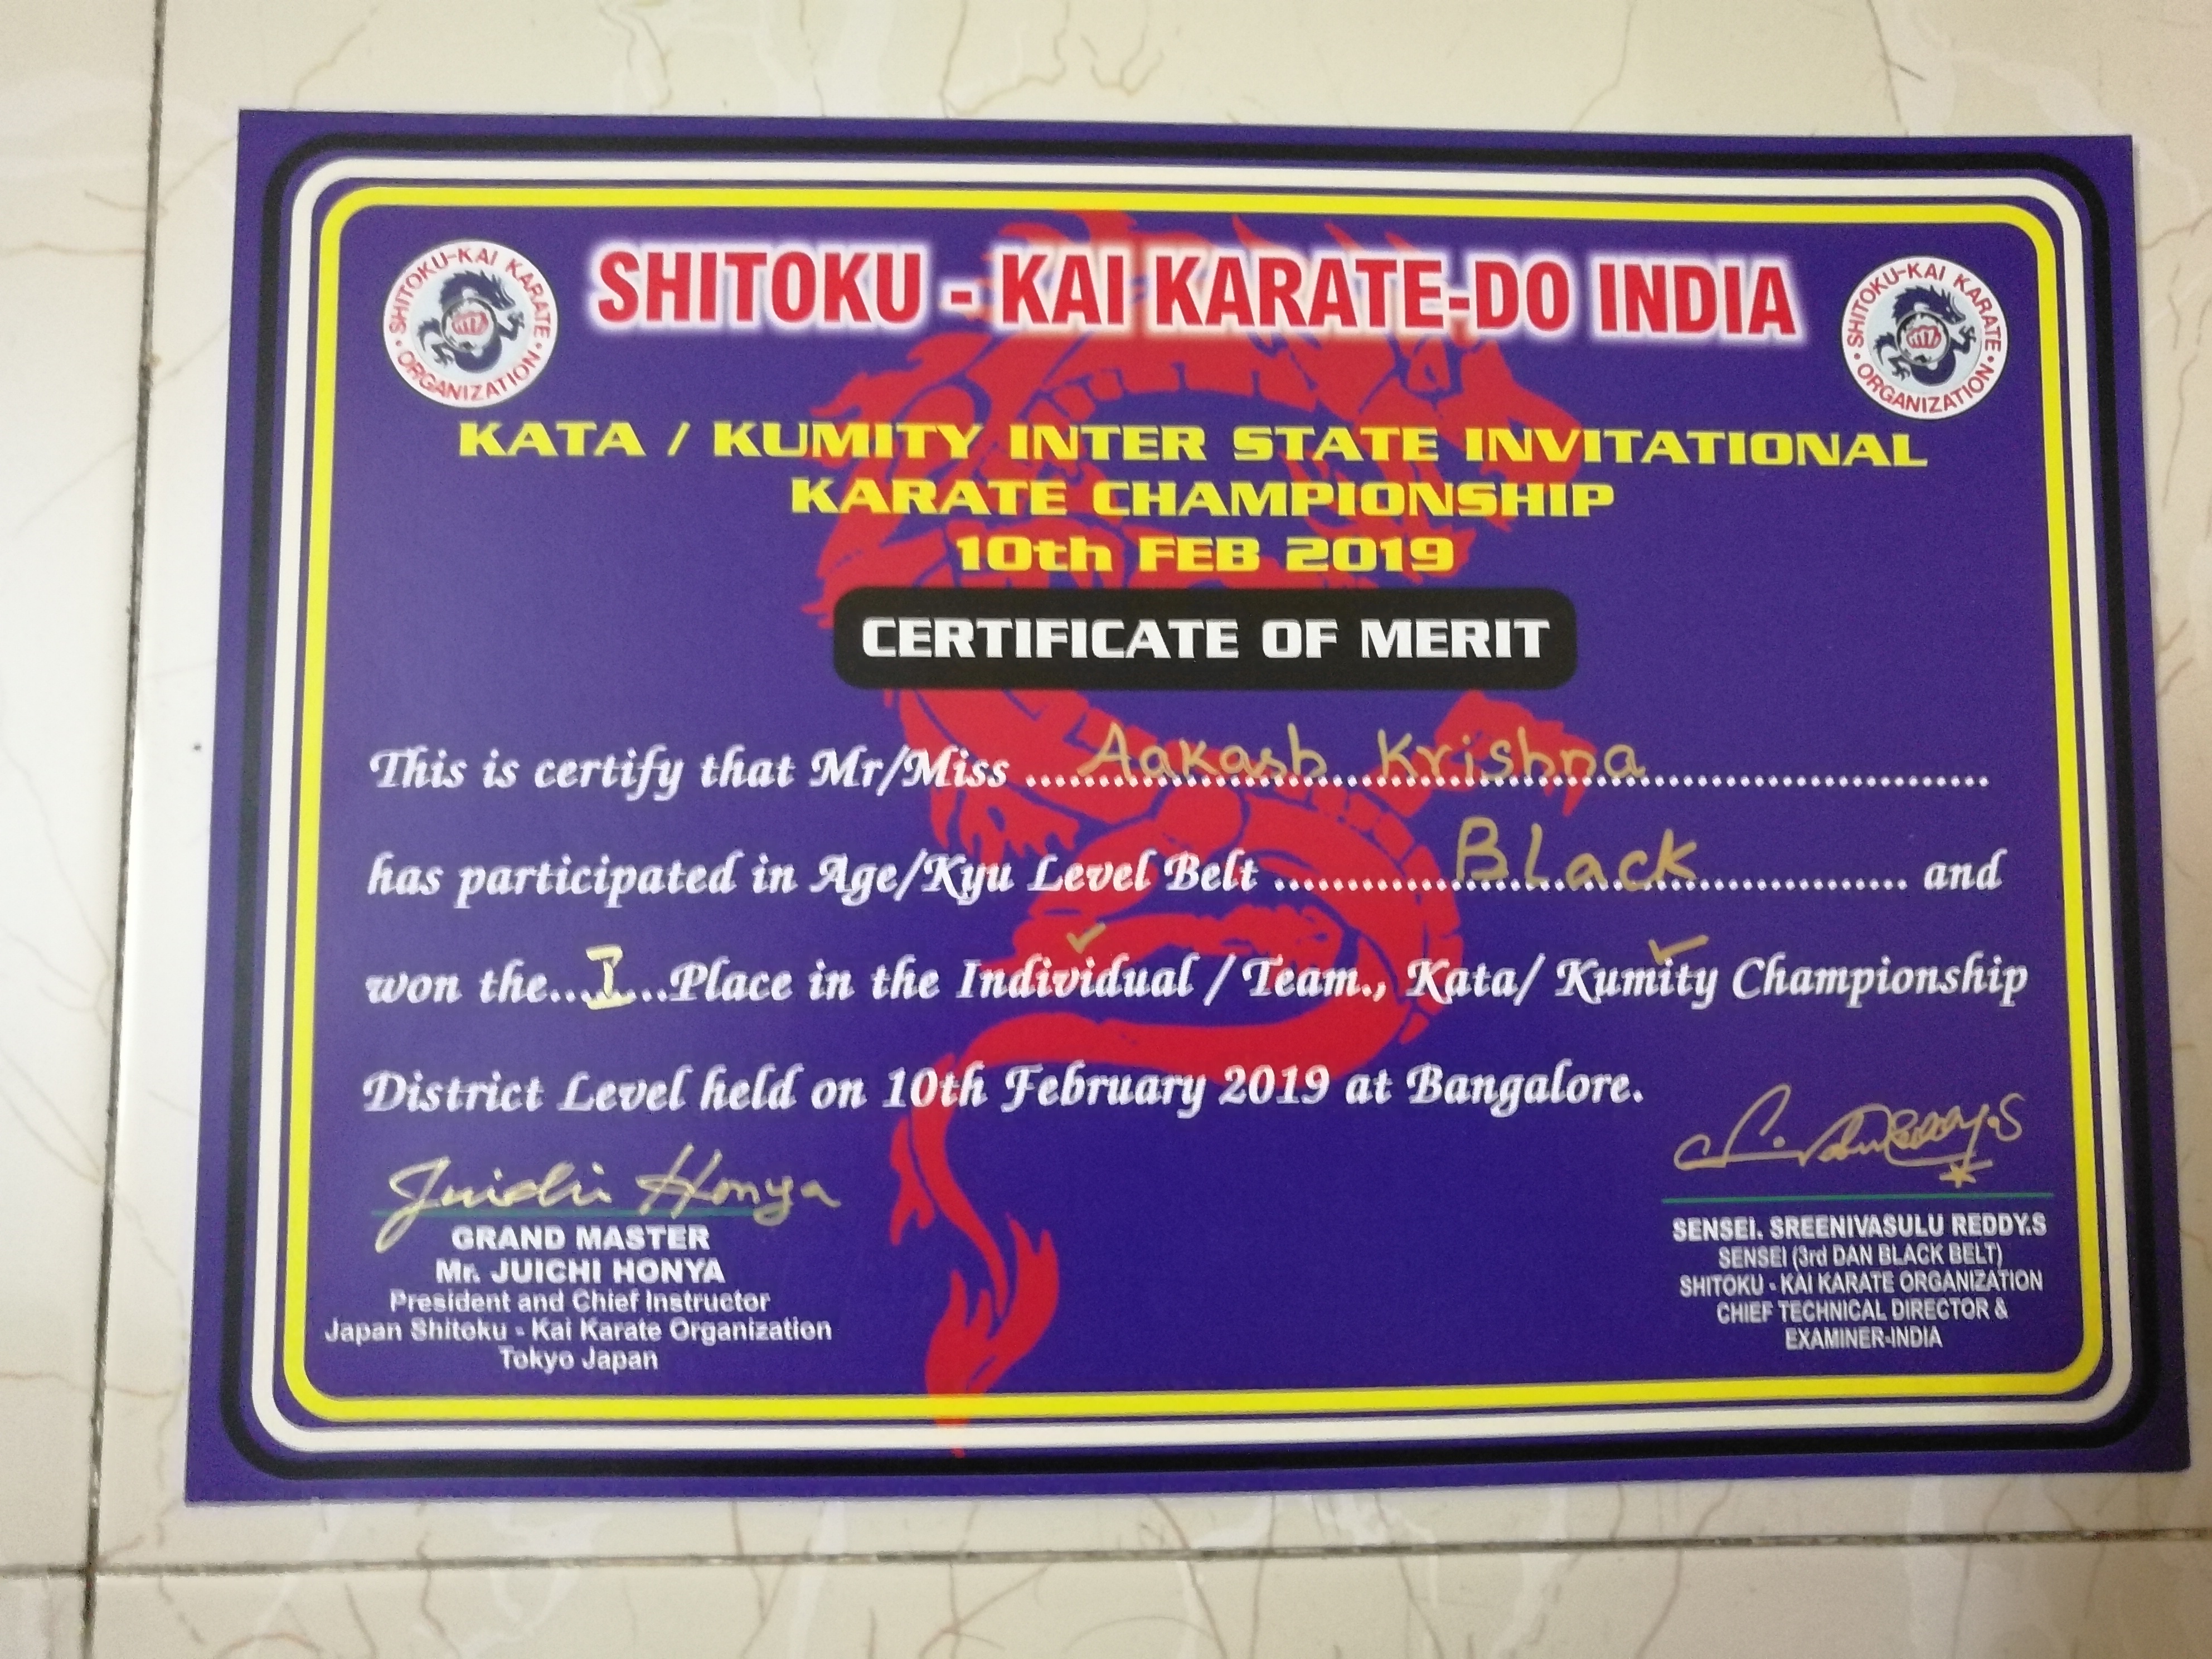 SHITOKU-KAI KARATE
ORGANIZATION
SHITOKU - KAI KARATE-DO INDIA
SHITOKU-KAI KARATE
ORGANIZATION
KATA / KUMITY INTER STATE INVITATIONAL
KARATE CHAMPIONSHIP
10th FEB 2019
CERTIFICATE OF MERIT
This is certify that Mr/Miss ........Aakash Krishna........
has participated in Age/Kyu Level Belt ........Black........ and
won the...I...Place in the Individual / Team., Kata/ Kumity Championship
District Level held on 10th February 2019 at Bangalore.
Juichi Honya
GRAND MASTER
Mr. JUICHI HONYA
President and Chief Instructor
Japan Shitoku - Kai Karate Organization
Tokyo Japan
SENSEI. SREENIVASULU REDDY.S
SENSEI (3rd DAN BLACK BELT)
SHITOKU - KAI KARATE ORGANIZATION
CHIEF TECHNICAL DIRECTOR &
EXAMINER-INDIA